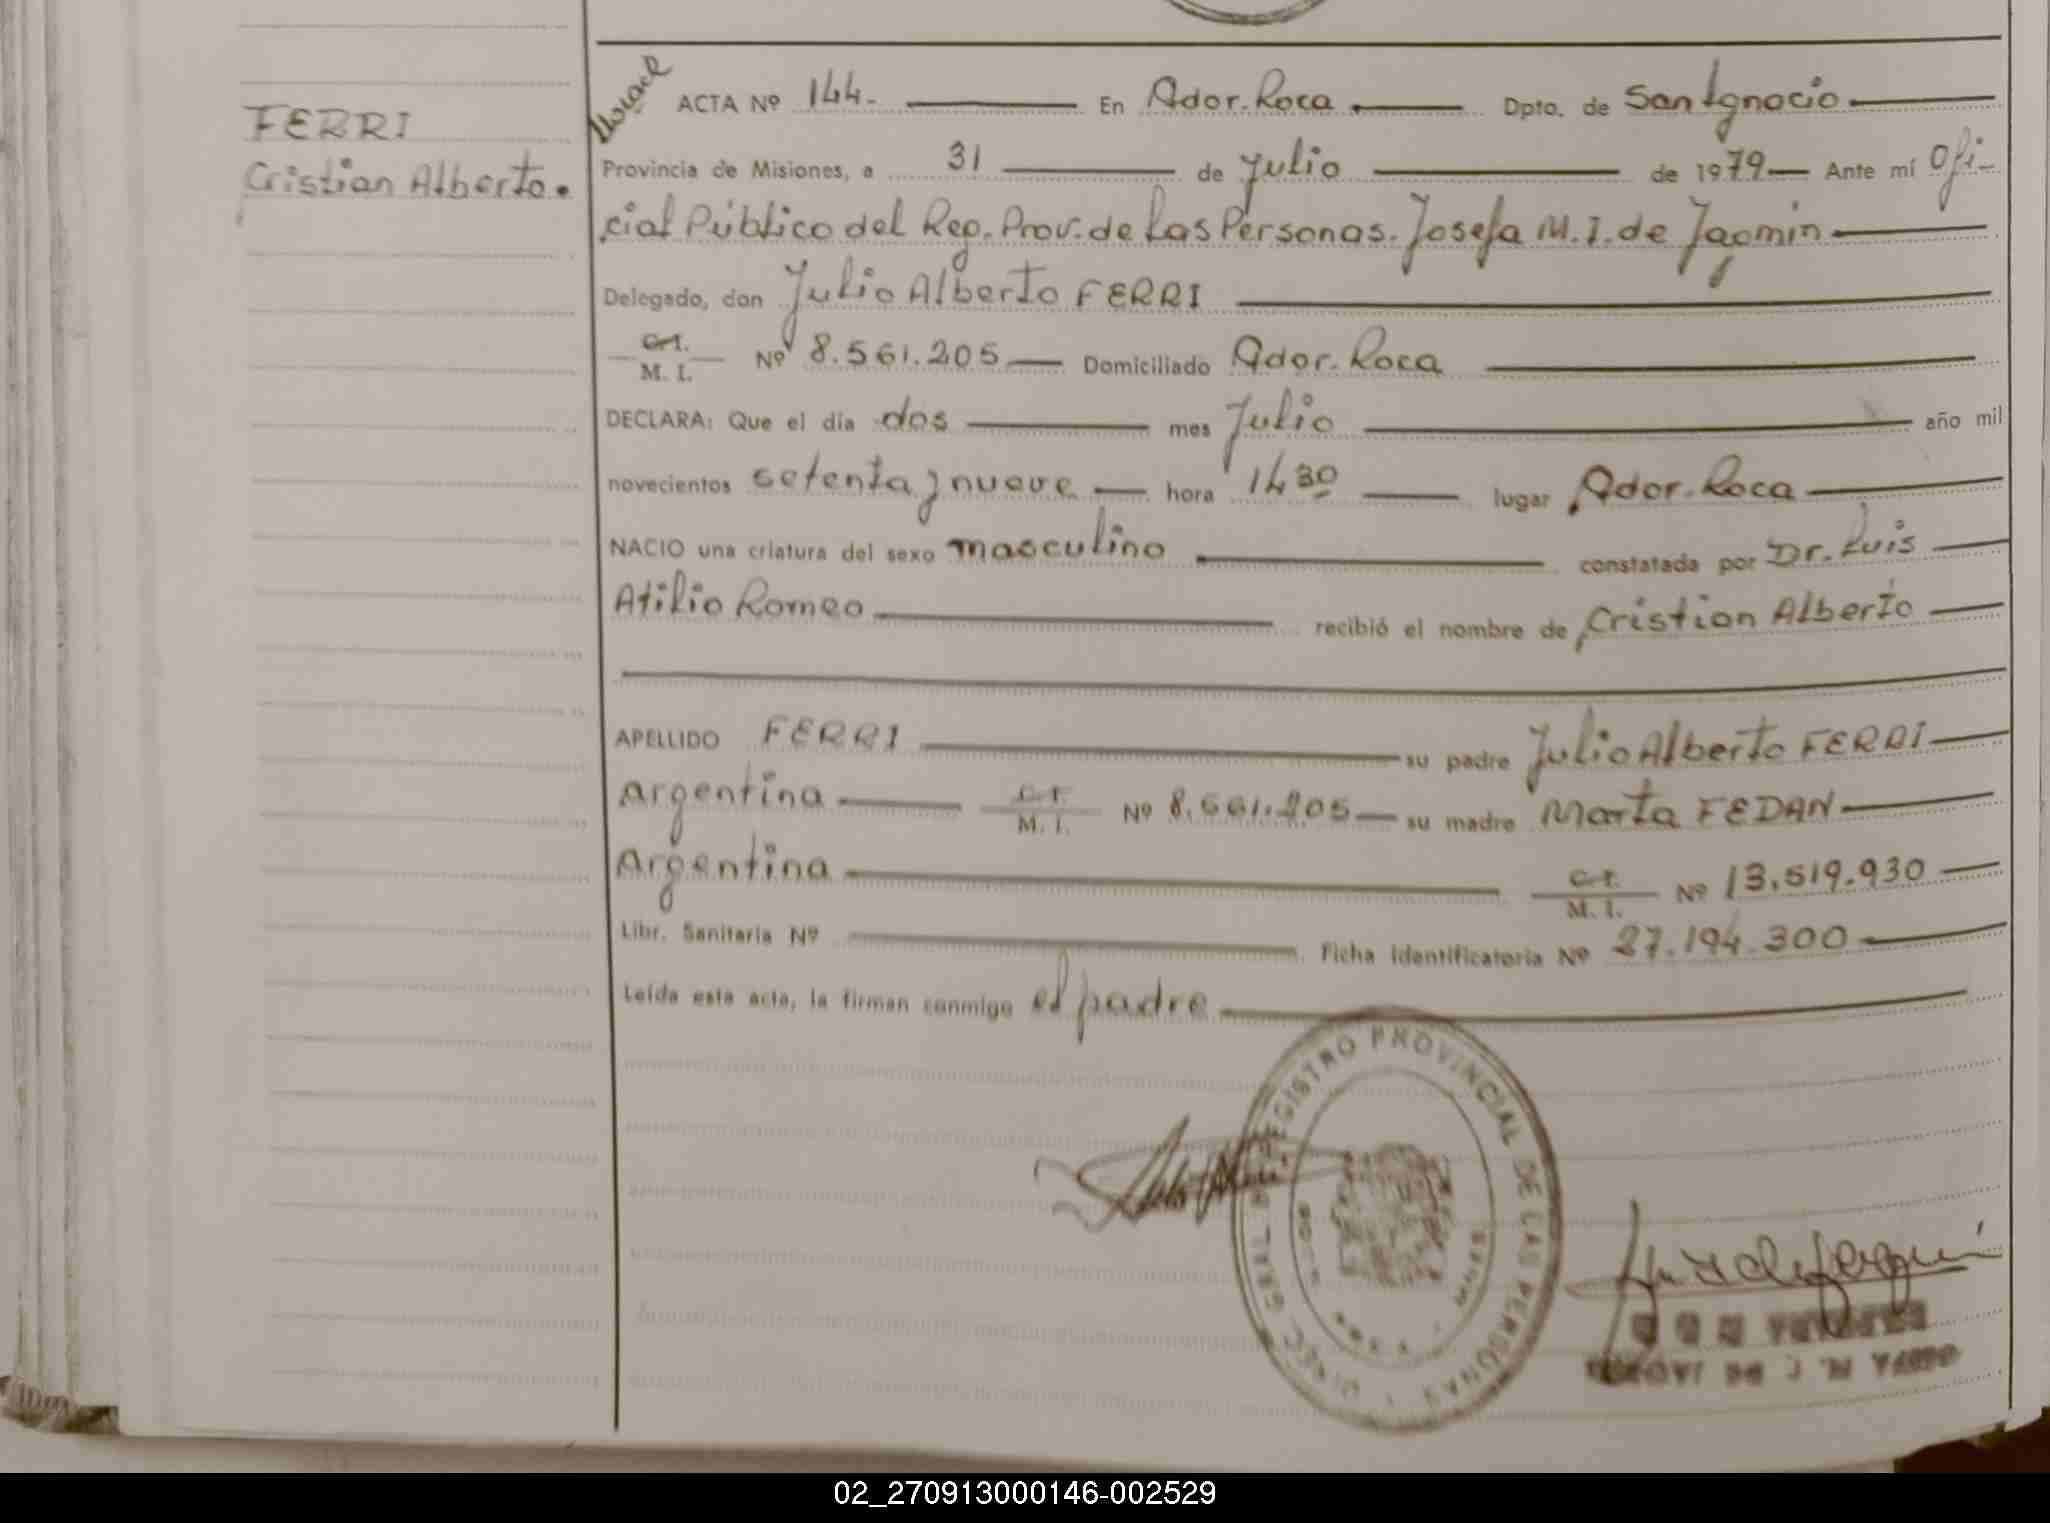 FERRI
Cristian Alberto.
ACTA Nº 144.- En Gdor. Roca Dpto. de San Ignacio
Provincia de Misiones, a 31 de Julio de 1979 Ante mí Ofi-
cial Público del Reg. Prov. de Las Personas. Josefa M. I. de Jaqmin
Delegado, don Julio Alberto FERRI
C.I. M. I. Nº 8.561.205 Domiciliado Gdor. Roca
DECLARA: Que el día dos mes Julio año mil
novecientos setenta y nueve hora 14 30 lugar Gdor. Roca
NACIO una criatura del sexo masculino constatada por Dr. Luis
Atilio Romeo recibió el nombre de Cristian Alberto
APELLIDO FERRI su padre Julio Alberto FERRI
Argentina C.I. M. I. Nº 8.561.205 su madre Marta FEDAN
Argentina C.I. M. I. Nº 13.519.930
Libr. Sanitaria Nº Ficha identificatoria Nº 27.194.300
Leída esta acta, la firman conmigo el padre
REGISTRO PROVINCIAL DE LAS PERSONAS
02_270913000146-002529